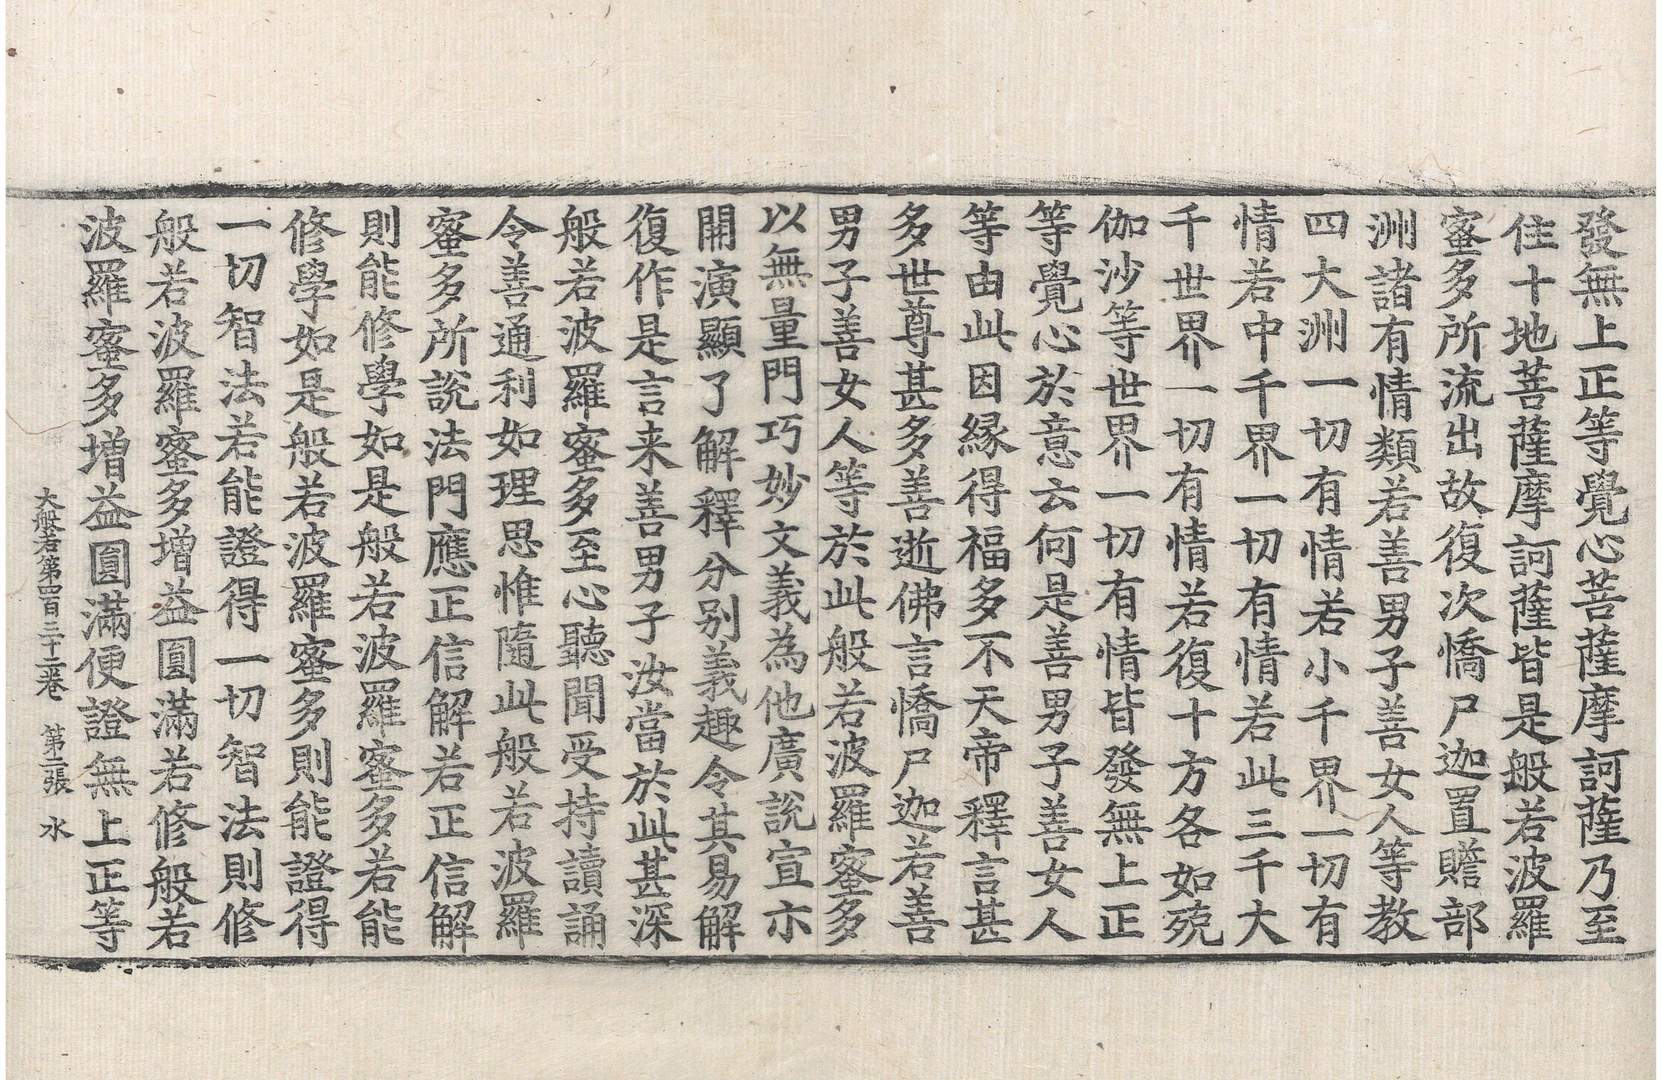 發無上正等覺心菩薩摩訶薩乃至
住十地菩薩摩訶薩皆是般若波羅
蜜多所流出故復次憍尸迦置贍部
洲諸有情類若善男子善女人等教
四大洲一切有情若小千界一切有
情若中千界一切有情若此三千大
千世界一切有情若復十方各如殑
伽沙等世界一切有情皆發無上正
等覺心於意云何是善男子善女人
等由此因緣得福多不天帝釋言甚
多世尊甚多善逝佛言憍尸迦若善
男子善女人等於此般若波羅蜜多
以無量門巧妙文義為他廣說宣示
開演顯了解釋分別義趣令其易解
復作是言来善男子汝當於此甚深
般若波羅蜜多至心聽聞受持讀誦
令善通利如理思惟隨此般若波羅
蜜多所說法門應正信解若正信解
則能修學如是般若波羅蜜多若能
修學如是般若波羅蜜多則能證得
一切智法若能證得一切智法則修
般若波羅蜜多增益圓滿若修般若
波羅蜜多增益圓滿便證無上正等
大般若第四百三十二卷 第二張 水